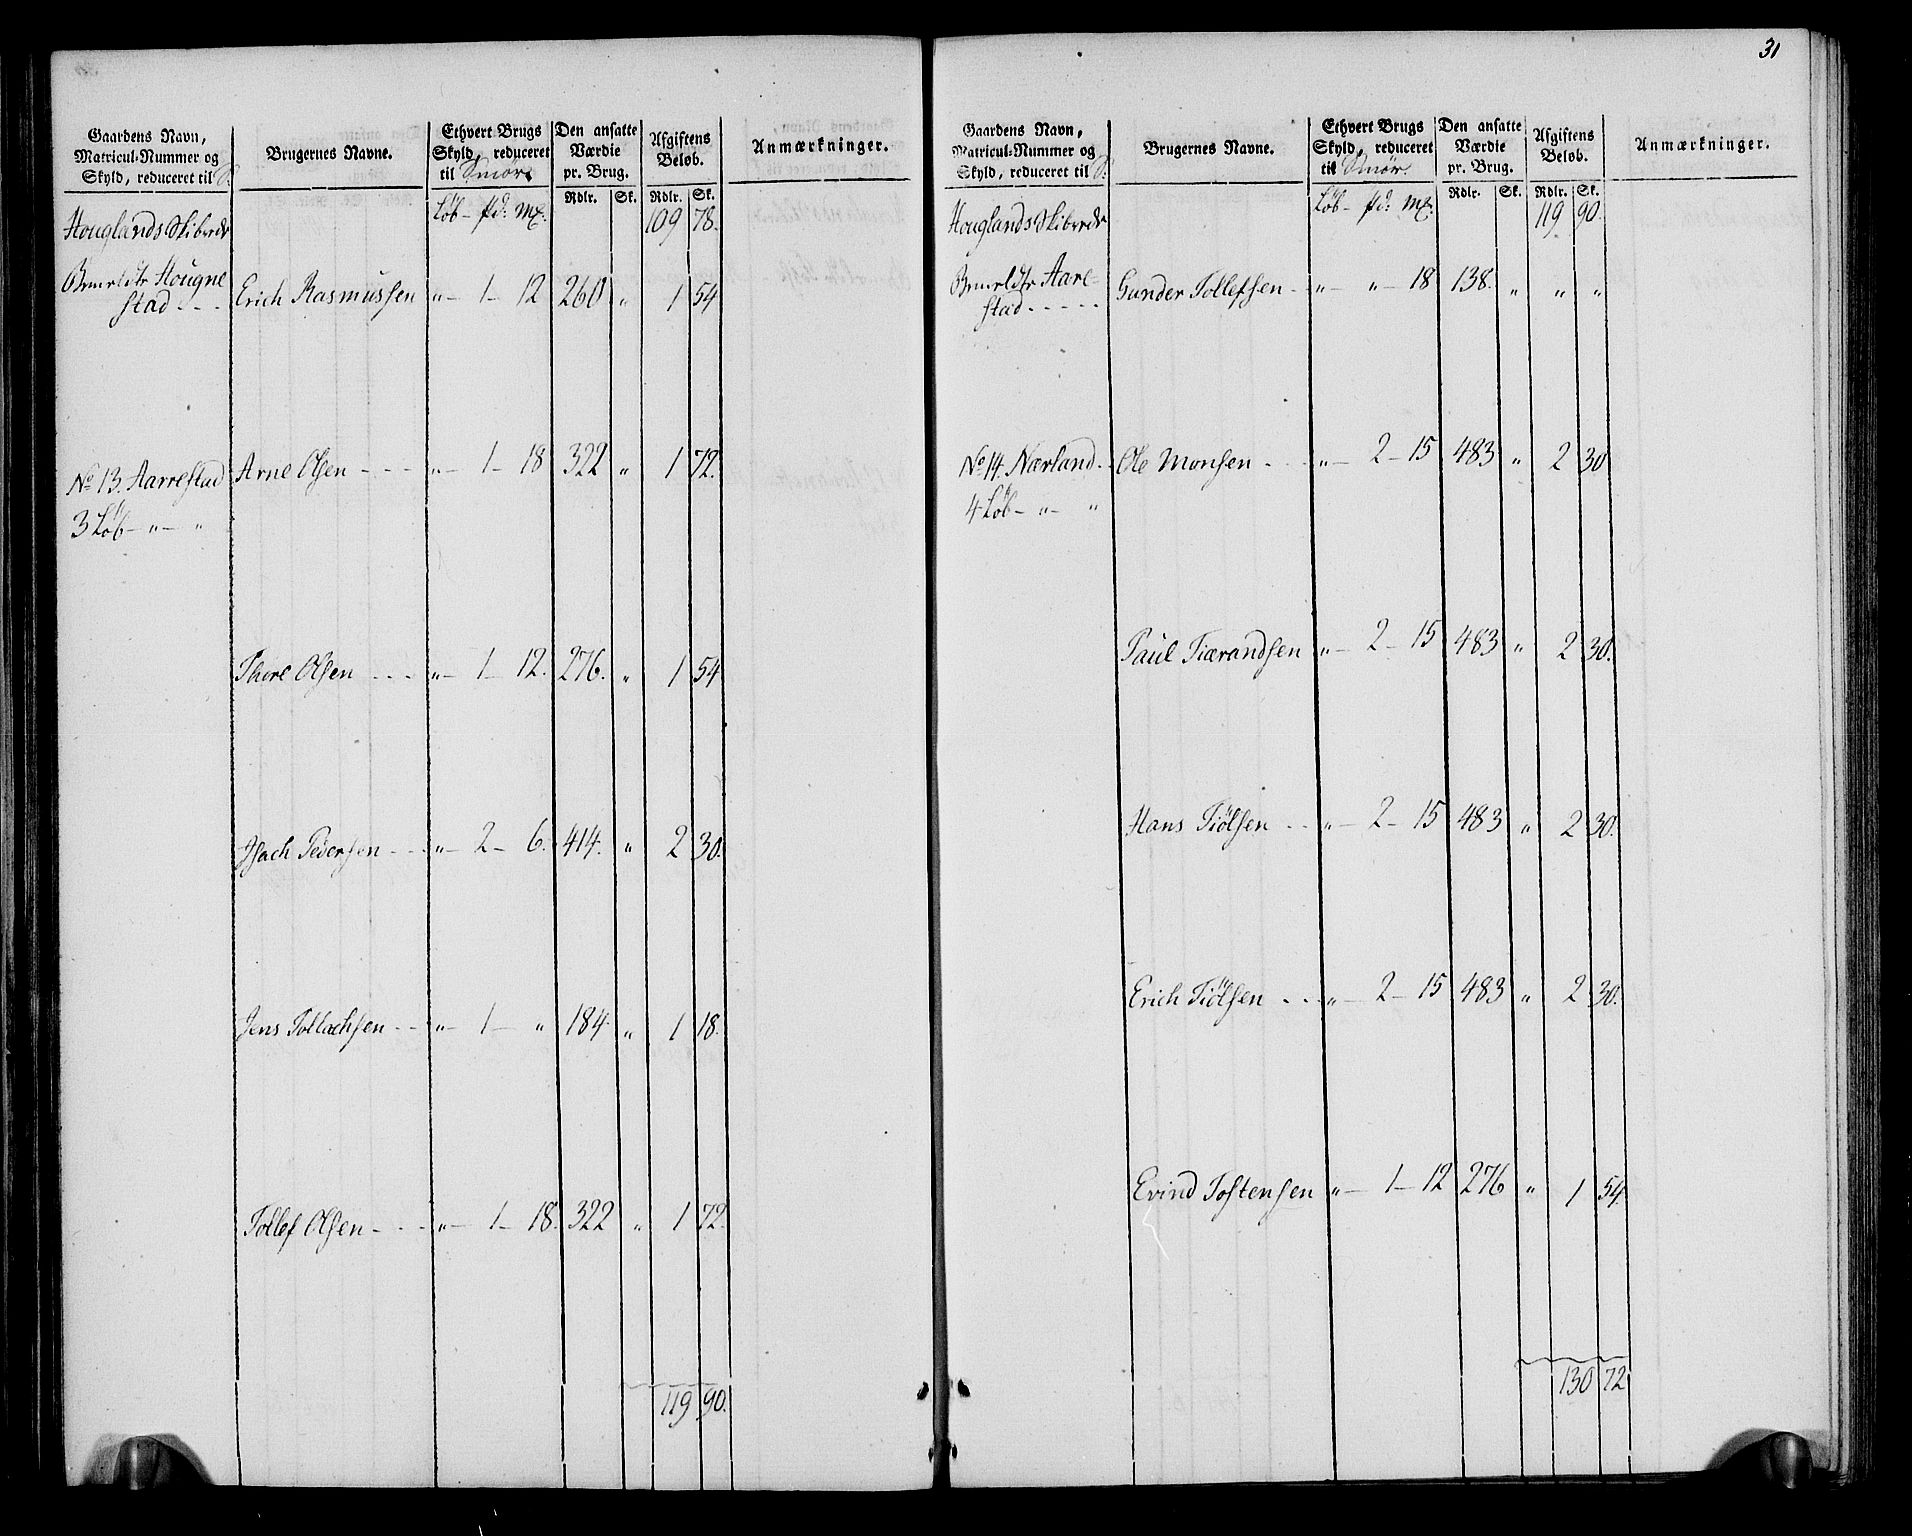 Gaardens Navn,
Matricul-Nummer og
Skyld, reduceret til S.
Brugernes Navne.
Ethvert Brugs
Skyld, reduceret
til Smör.
Den ansatte
Værdie
pr. Brug.
Afgiftens
Beløb.
Anmærkninger.
Rdlr. Sk. Rdlr. Sk.
Houglands Skibrede Löb - pd: mk: 109 78.
Hougne
stad . . . Erich Rasmussen " - 1 - 12 260 " 1 54
No 13. Aarrestad Arne Olsen - - - " - 1 - 18 322 " 1 72.
3 Löb - " - "
Thore Olsen . . . " - 1 - 12. 276. " 1 54
Isach Pedersen - - - " - 2 - 6. 414. " 2 30.
Jens Tollachsen - - - " - 1 - " 184. " 1 18.
Tollef Olsen - - - " - 1 - 18. 322 " 1 72.
119 90.
31
Gaardens Navn,
Matricul-Nummer og
Skyld, reduceret til S.
Brugernes Navne.
Ethvert Brugs
Skyld, reduceret
til Smör.
Den ansatte
Værdie
pr. Brug.
Afgiftens
Beløb.
Anmærkninger.
Rdlr. Sk. Rdlr. Sk.
Houglands Skibrede Löb - pd: mk: 119 90.
Aare-
stad . . . . . Gunder Tollefsen - " - " - 18 138. " " "
No 14. Nærland - Ole Monsen - - - " - 2 - 15 483 " 2 30
4 Löb - " - "
Paul Tiærandsen " - 2 - 15 483 " 2 30.
Hans Tiölsen - - " - 2 - 15 483 " 2 30.
Erich Tiölsen - - - " - 2 - 15 483 " 2 30.
Evind Tostensen " - 1 - 12 276 " 1 54
130 72